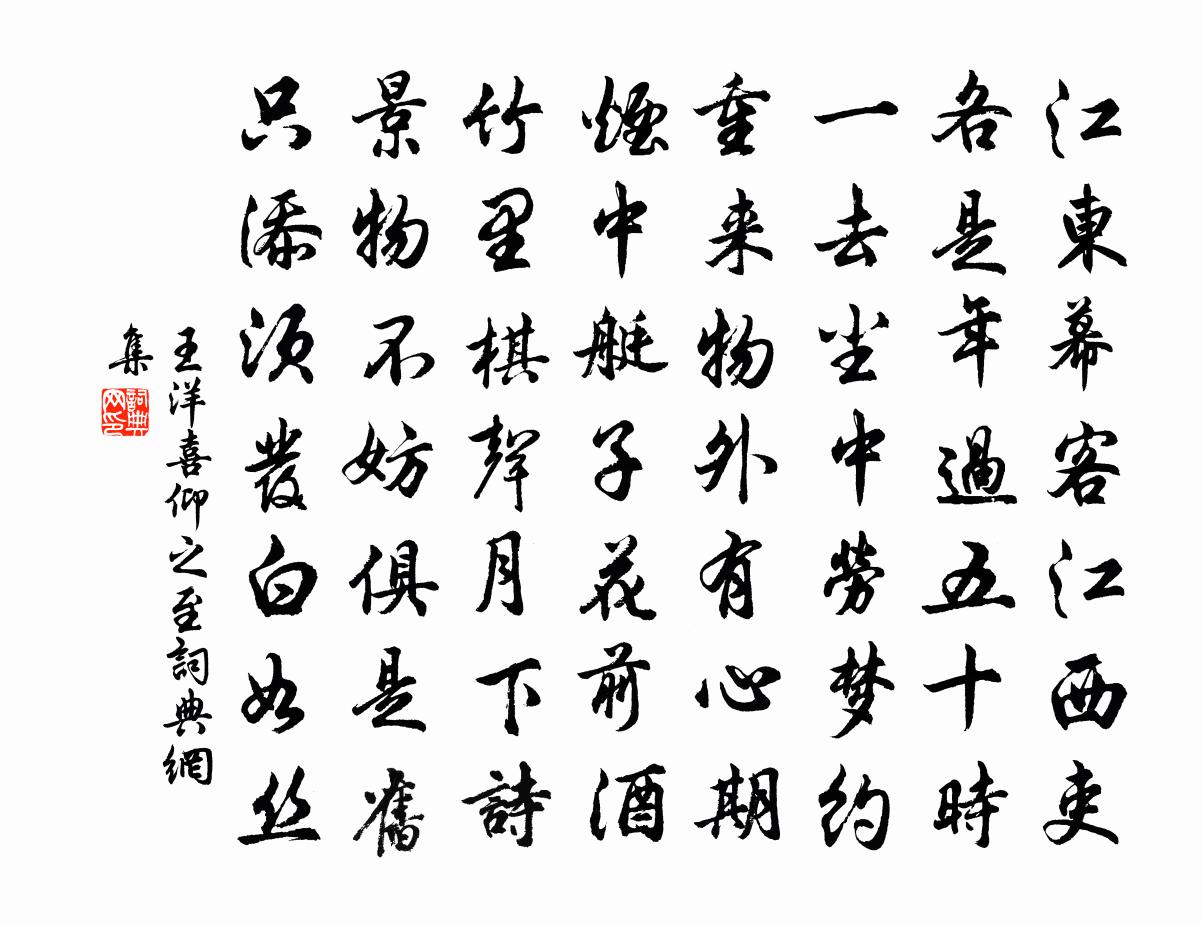 江東幕客江西吏
各是年過五十時
一去尘中勞梦約
重来物外有心期
煙中艇子花前酒
竹里棋聲月下詩
景物不妨俱是舊
只添须發白如丝
王洋喜仰之至詞典網
集
詞典網印